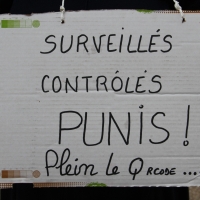 SURVEILLÉS
CONTRÔLÉS
PUNIS !
Plein le QRCODE ...